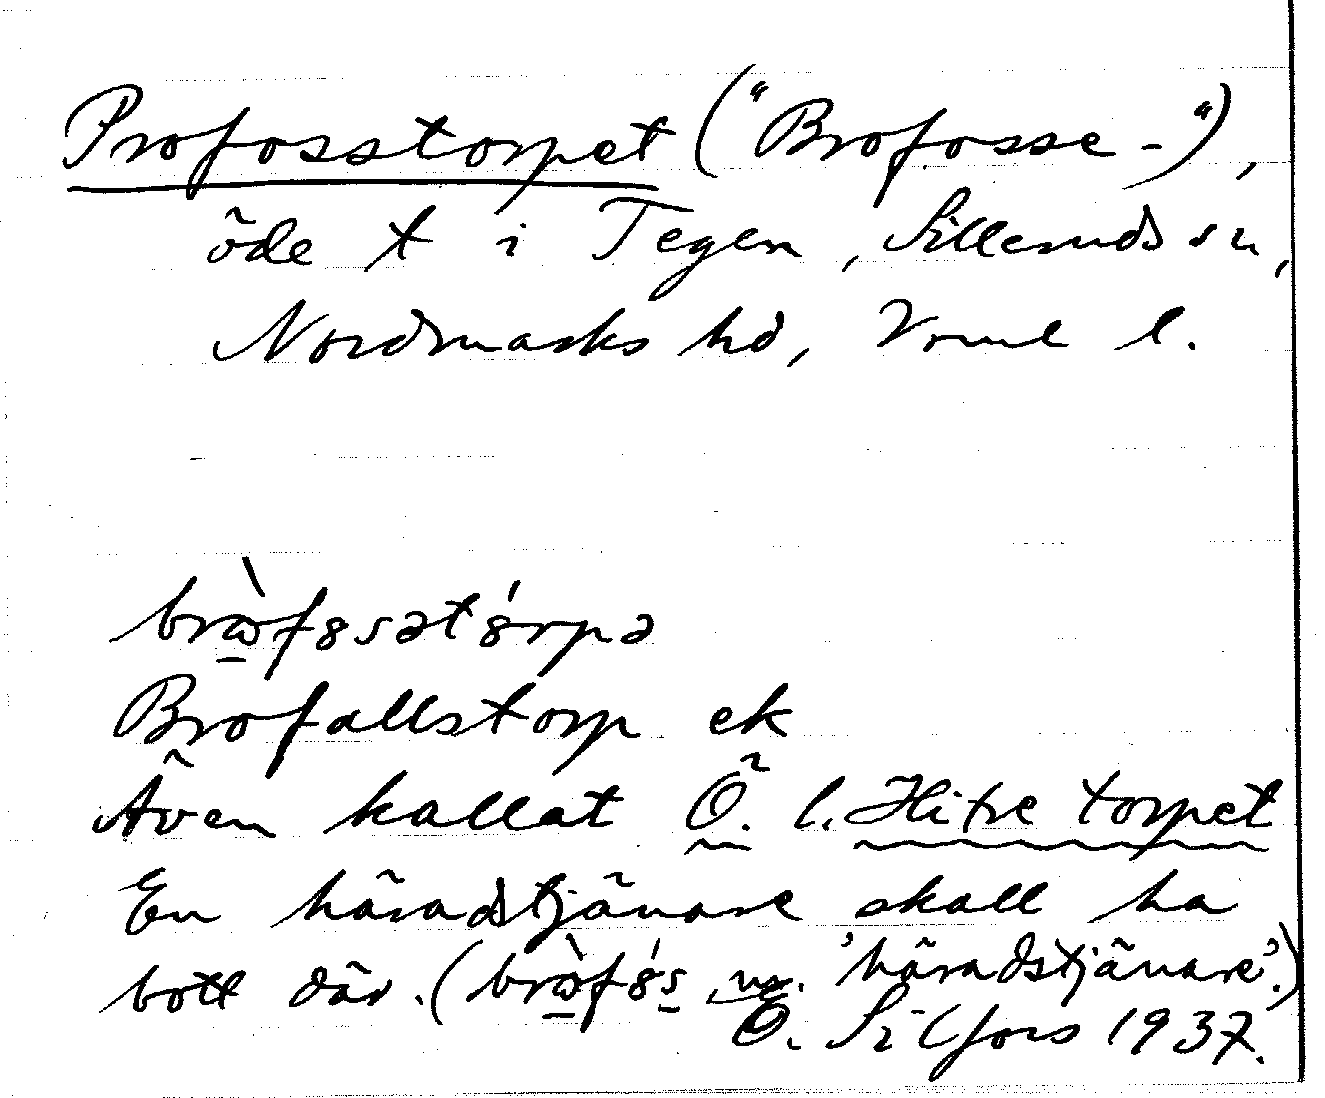 Profosstorpet ("Brofosse-"),
öde t i Tegen, Silleruds sn,
Nordmarks hd, Vrml l.
brὼfȣsət8́rpə
Brofallstorp ek
Även kallat Ö. l. Hitre torpet
En häradstjänare skall ha
bott där. (brὼf8́s, m. 'häradstjänare'.)
E. Silfors 1937.